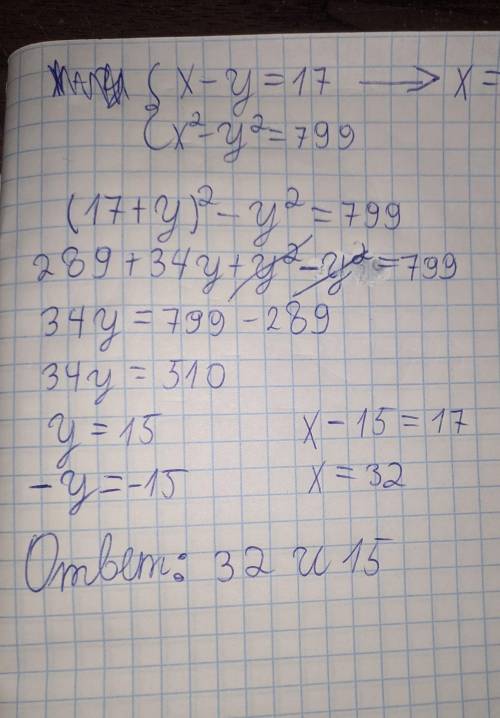 { x - y = 17 ⟶ x =
{ x² - y² = 799
(17 + y)² - y² = 799
289 + 34y + y² - y² = 799
34y = 799 - 289
34y = 510
y = 15 x - 15 = 17
-y = -15 x = 32
Ответ: 32 и 15